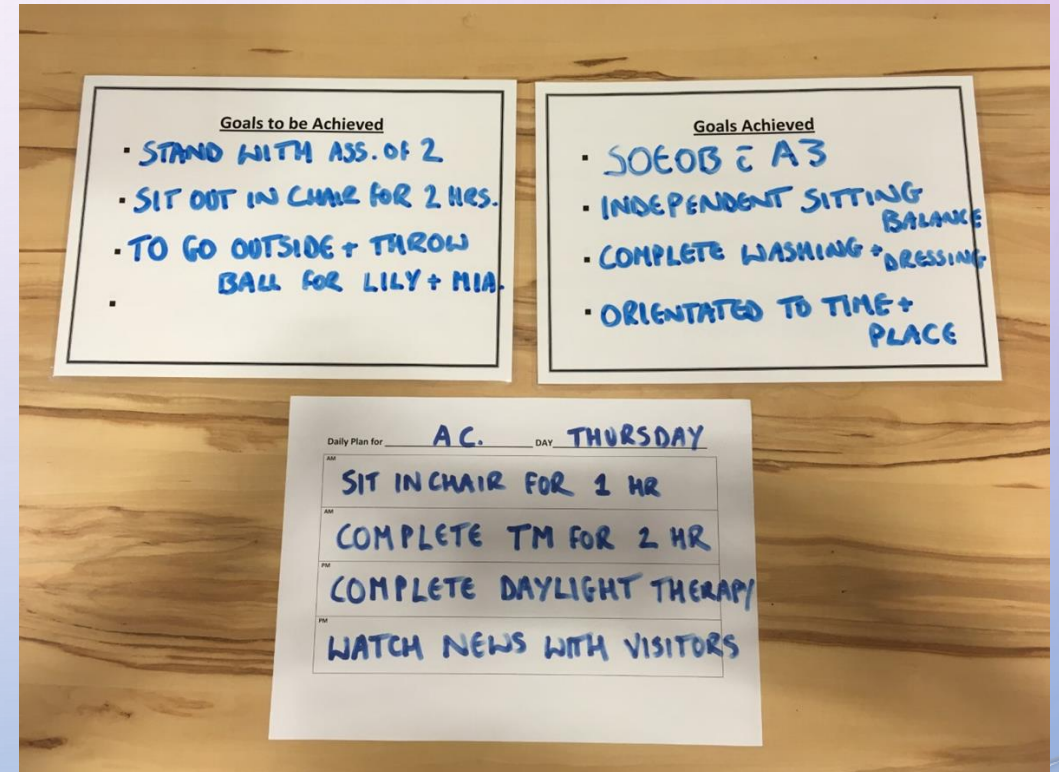 Goals to be Achieved
▪ STAND WITH ASS. OF 2
▪ SIT OUT IN CHAIR FOR 2 HRS.
▪ TO GO OUTSIDE + THROW
BALL FOR LILY + MIA.
▪
Goals Achieved
▪ SOEOB c̄ A3
▪ INDEPENDENT SITTING
BALANCE
▪ COMPLETE WASHING +
DRESSING
▪ ORIENTATED TO TIME +
PLACE
Daily Plan for A C. DAY THURSDAY
AM
SIT IN CHAIR FOR 1 HR
AM
COMPLETE TM FOR 2 HR
PM
COMPLETE DAYLIGHT THERAPY
PM
WATCH NEWS WITH VISITORS